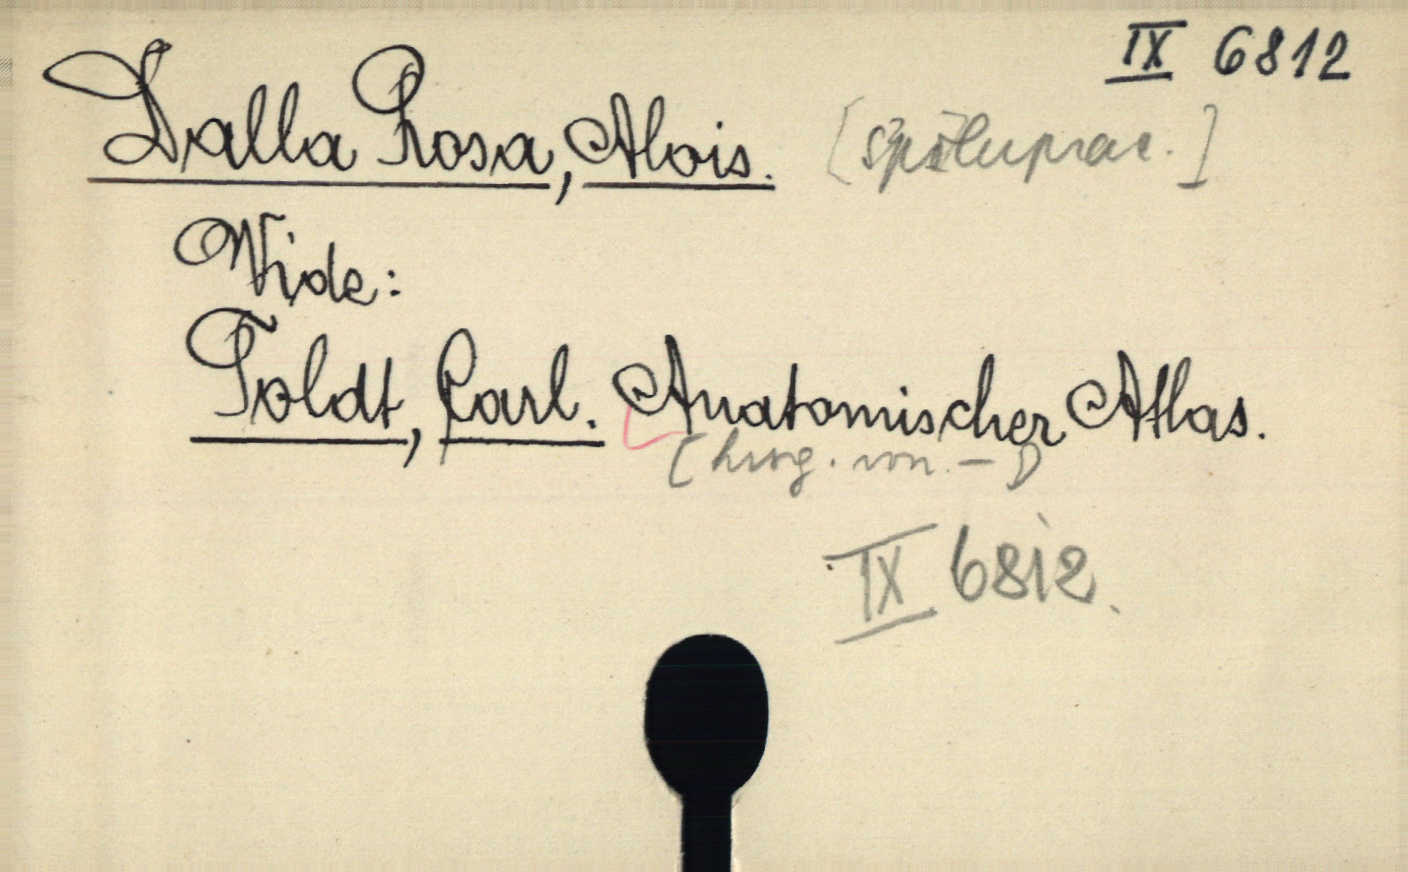 IX 6812
Dalla Rosa, Alois. [spoluprac.]
Vide:
Toldt, Carl. Anatomischer Atlas.
[hrsg. von. - ]
IX 6812.